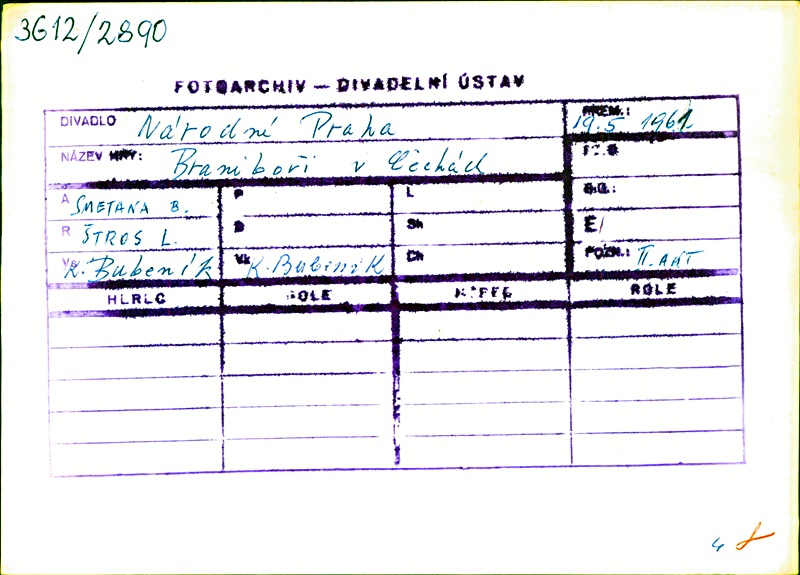 3612/2890
FOTOARCHIV — DIVADELNÍ ÚSTAV
DIVADLO Národní Praha
PREM.: 19.5 1961
NÁZEV HRY: Braniboři v Čechách
A SMETANA B. P L
R ŠTROS L. D Sh E/
K. Bubeník Vk K. Bubeník Ch POZN.: II. AKT
ROLE ROLE
4